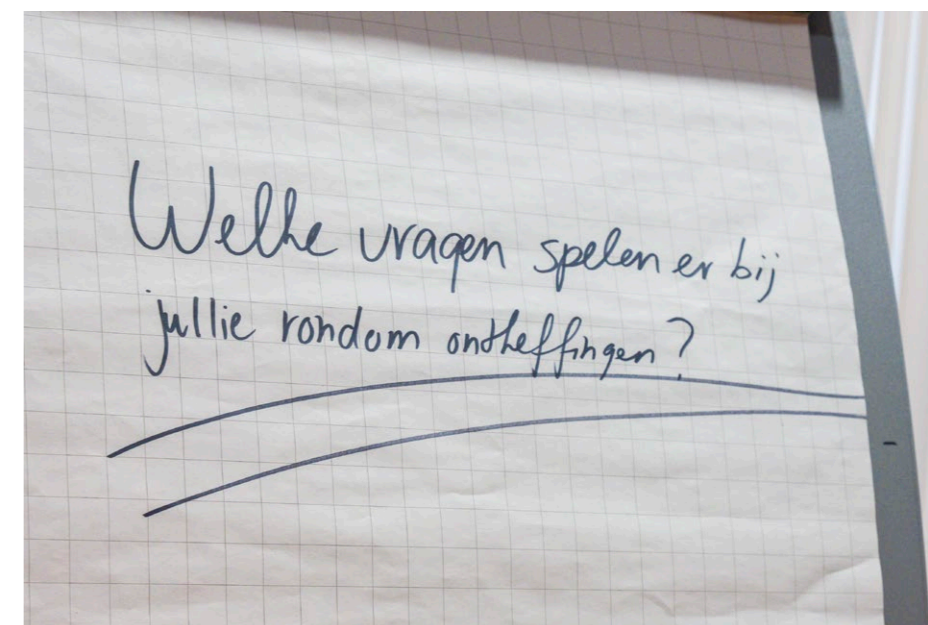 Welke vragen spelen er bij
jullie rondom ontheffingen?